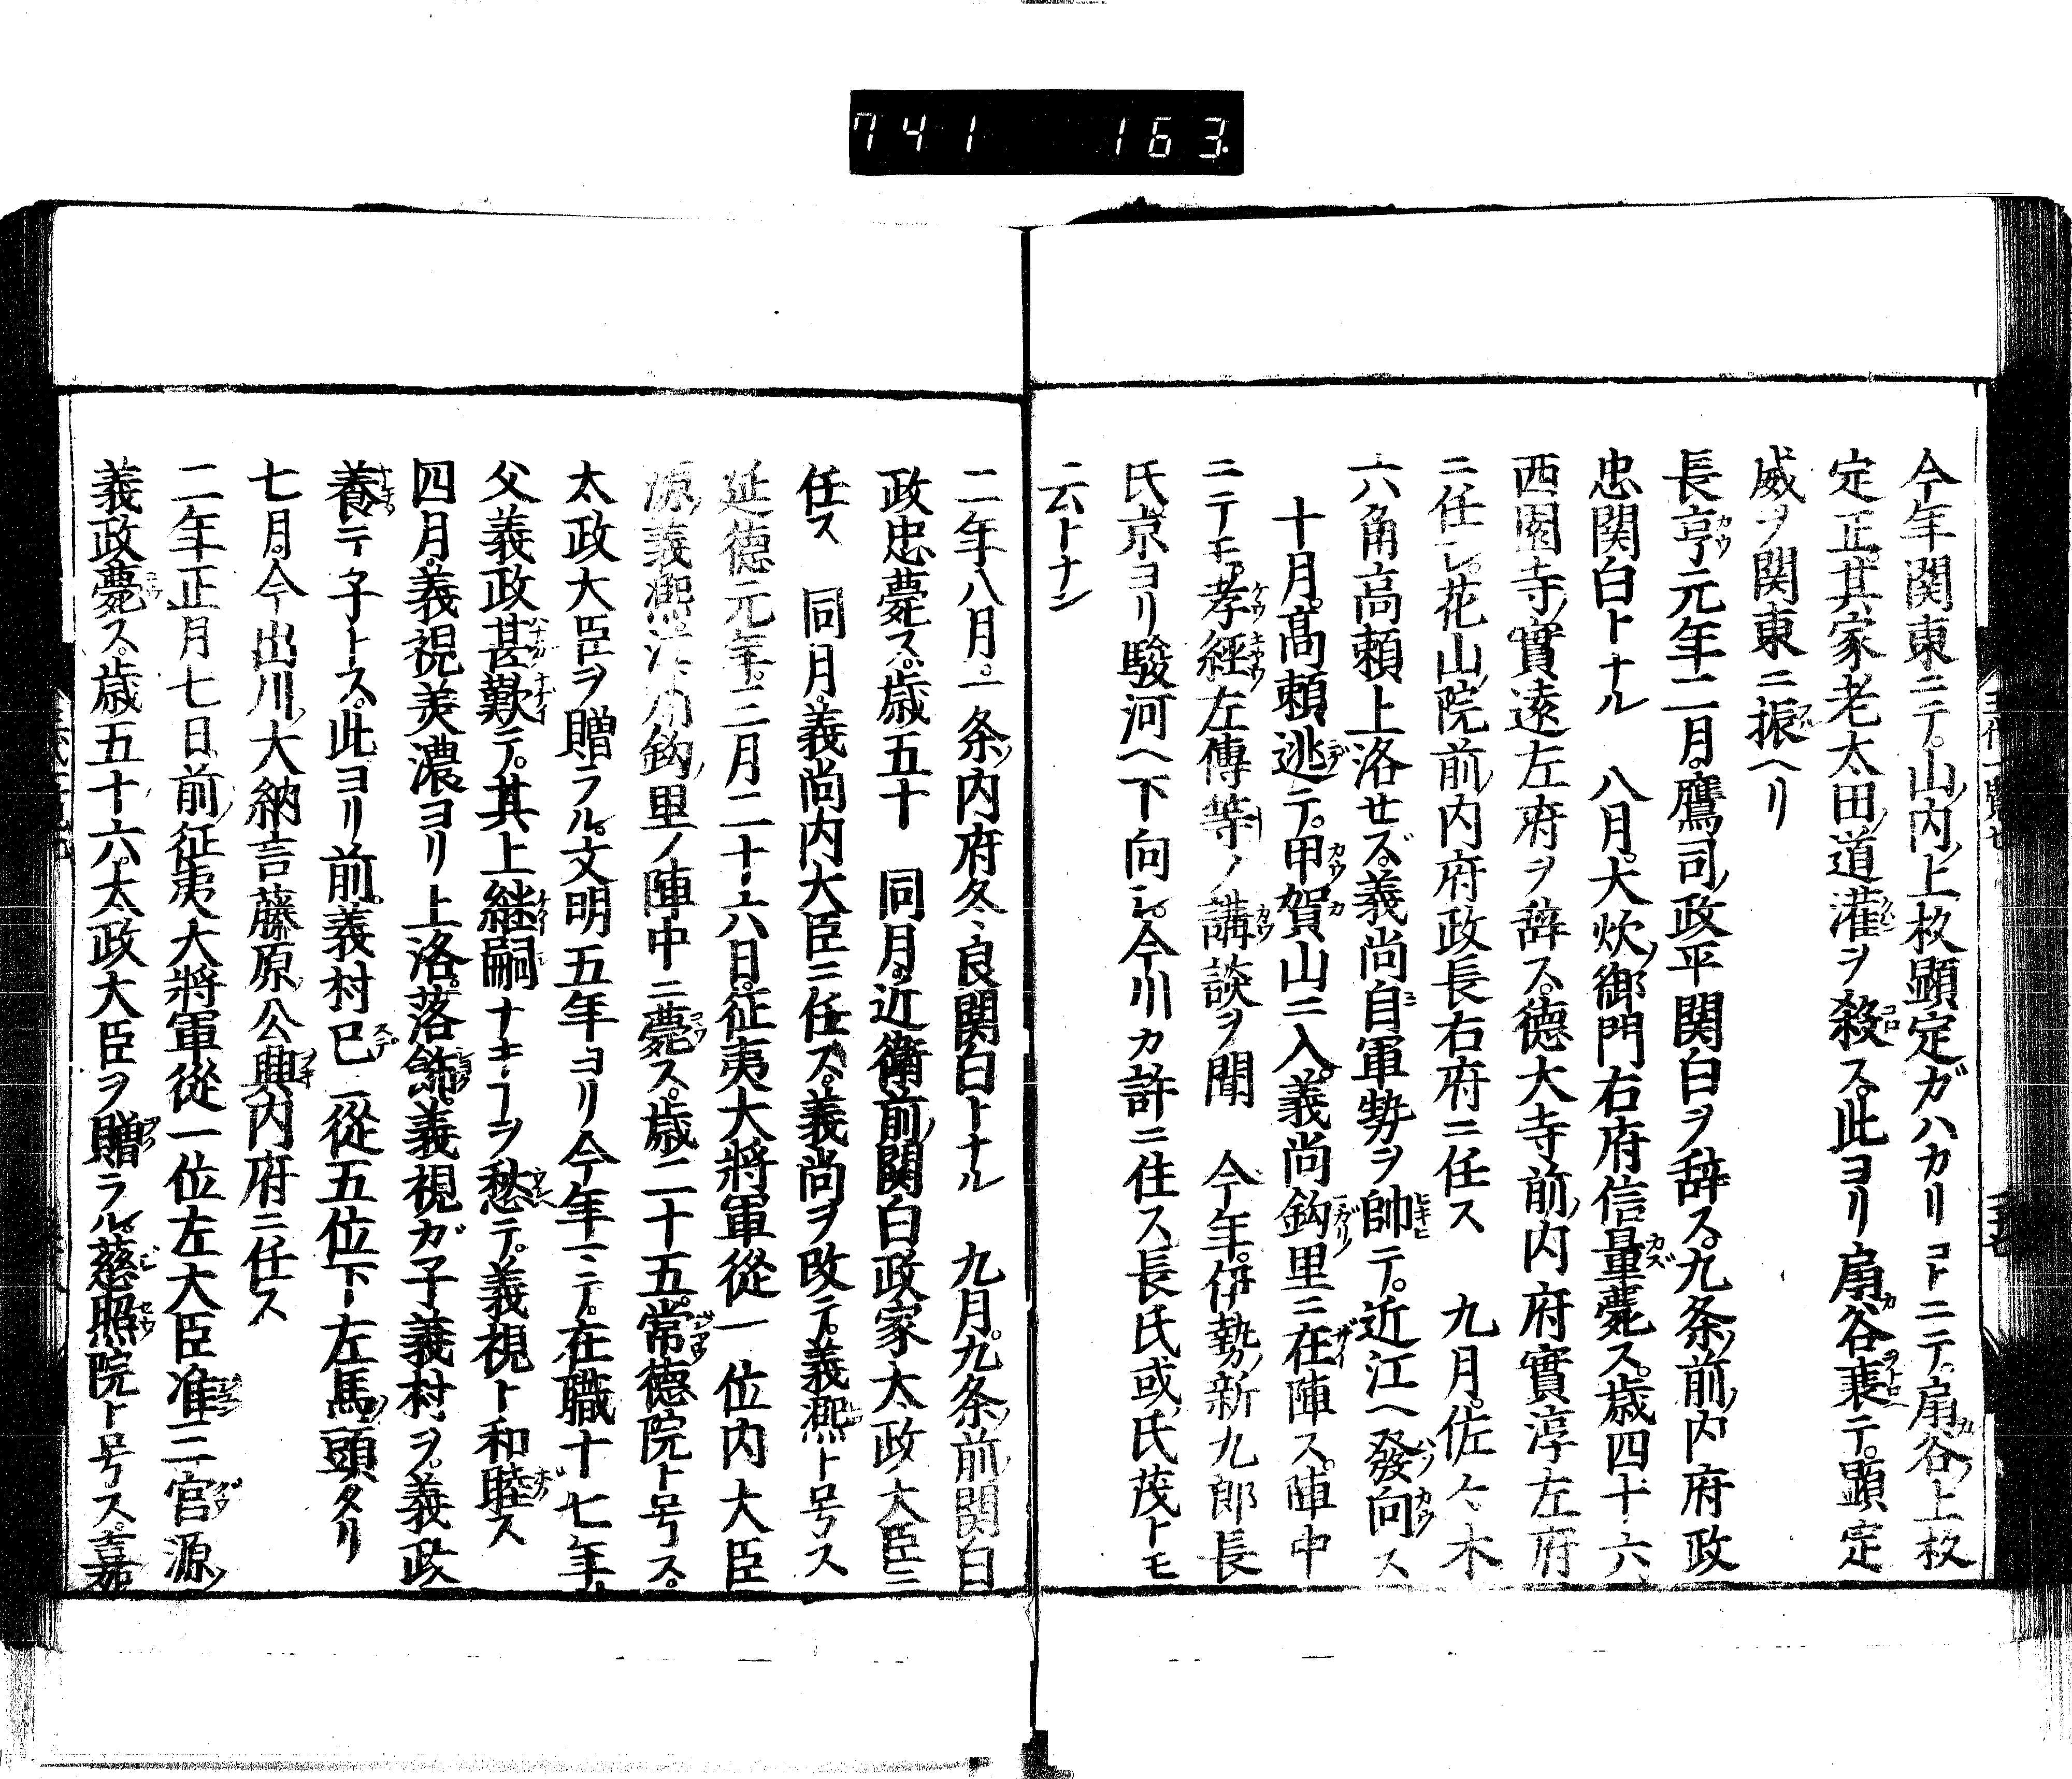 741 163
今年関東ニテ。山内ノ上杦顕定ガハカリコトニテ。扇谷ノ上杦
定正。其家老太田ノ道灌ヲ殺ス。此ヨリ扇谷衰テ。顕定
威ヲ関東ニ振ヘリ
長亨元年二月。鷹司ノ政平関白ヲ辞ス。九条ノ前ノ内府政
忠関白トナル 八月。大炊ノ御門右府信量薨ス。歳四十六
西園寺ノ實遠左府ヲ辞ス。德大寺前ノ内府實淳左府
ニ任シ。花山ノ院前ノ内府政長右府ニ任ス 九月。佐々木
六角高頼上洛セズ。義尚自軍勢ヲ帥テ。近江ヘ發向ス
十月。高頼逃テ。甲賀山ニ入。義尚鈎里ニ在陣ス。陣中
ニテモ。孝經左傳等ノ講談ヲ聞 今年。伊勢ノ新九郎長
氏京ヨリ駿河ヘ下向シ。今川カ許ニ住ス長氏或氏茂トモ
云トナン
二年八月。一条ノ内府冬良関白トナル 九月。九条ノ前ノ関白
政忠薨ス。歳五十 同月。近衛前ノ関白政家太政大臣ニ
任ス 同月。義尚内大臣ニ任ス。義尚ヲ改テ。義凞ト号ス
延德元年。三月二十六日。征夷大將軍從一位内大臣
源ノ義凞。江州鈎ノ里ノ陣中ニ薨ス。歳二十五。常德院ト号ス。
太政大臣ヲ贈ラル。文明五年ヨリ今年ニテ。在職十七年。
父義政甚歎テ。其上継嗣ナキヿヲ愁テ。義視ト和睦ス
四月。義視美濃ヨリ上洛。落餝。義視ガ子義村ヲ。義政
養テ子トス。此ヨリ前。義村已ニ從五位下左馬ノ頭タリ
七月。今出川ノ大納言藤原ノ公興内府ニ任ス
二年正月七日。前ノ征夷大將軍從一位左大臣准三宮源ノ
義政薨ス。歳五十六。太政大臣ヲ贈ラル。慈照院ト号ス。嘉